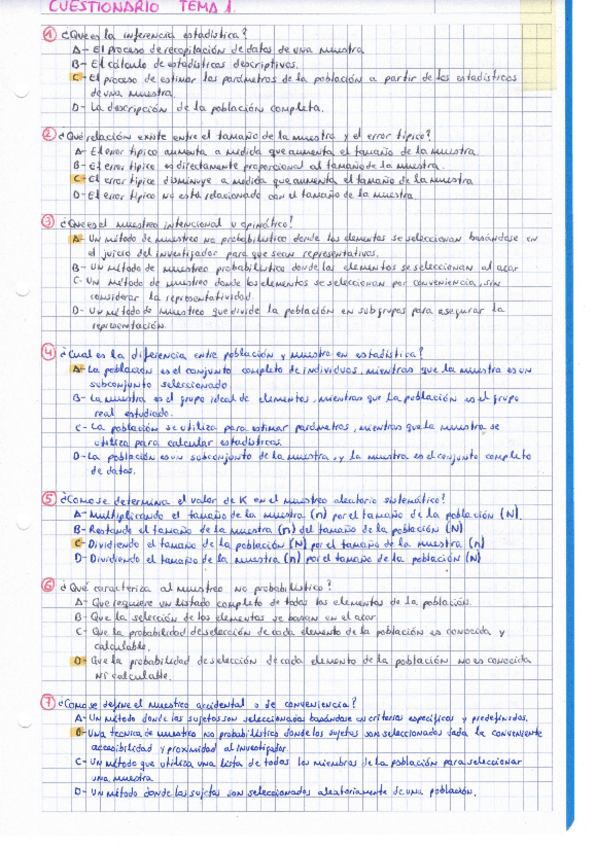 CUESTIONARIO TEMA 1.
1 ¿Que es la inferencia estadística?
A- El proceso de recopilación de datos de una muestra
B- El cálculo de estadísticas descriptivas.
C- El proceso de estimar los parámetros de la población a partir de los estadísticos
de una muestra.
D- La descripción de la población completa.
2 ¿Qué relación existe entre el tamaño de la muestra y el error típico?
A- El error típico aumenta a medida que aumenta el tamaño de la muestra.
B- El error típico es directamente proporcional al tamaño de la muestra.
C- El error típico disminuye a medida que aumenta el tamaño de la muestra
D- El error típico no está relacionado con el tamaño de la muestra.
3 ¿Que es el muestreo intencional u opinático?
A- Un método de muestreo no probabilístico donde los elementos se seleccionan basándose en
el juicio del investigador para que sean representativos.
B- Un método de muestreo probabilístico donde los elementos se seleccionan al azar
C- Un método de muestreo donde los elementos se seleccionan por conveniencia, sin
considerar la representatividad.
D- Un método de muestreo que divide la población en subgrupos para asegurar la
representación.
4 ¿Cual es la diferencia entre población y muestra en estadística?
A- La población es el conjunto completo de individuos, mientras que la muestra es un
subconjunto seleccionado.
B- La muestra es el grupo ideal de elementos, mientras que la población es el grupo
real estudiado.
C- La población se utiliza para estimar parámetros, mientras que la muestra se
utiliza para calcular estadísticas.
D- La población es un subconjunto de la muestra, y la muestra es el conjunto completo
de datos.
5 ¿Como se determina el valor de K en el muestreo aleatorio sistemático?
A- Multiplicando el tamaño de la muestra (n) por el tamaño de la población (N).
B- Restando el tamaño de la muestra (n) del tamaño de la población (N)
C- Dividiendo el tamaño de la población (N) por el tamaño de la muestra (n)
D- Dividiendo el tamaño de la muestra (n) por el tamaño de la población (N)
6 ¿Qué caracteriza al muestreo no probabilístico?
A- Que requiere un listado completo de todos los elementos de la población.
B- Que la selección de los elementos se basan en el azar
C- Que la probabilidad de selección de cada elemento de la población es conocida y
calculable.
D- Que la probabilidad de selección de cada elemento de la población no es conocida
ni calculable.
7 ¿Como se define el muestreo accidental o de conveniencia?
A- Un método donde los sujetos son seleccionados basándose en criterios específicos y predefinidos.
B- Una tecnica de muestreo no probabilístico donde los sujetos son seleccionados dada la conveniente
accesibilidad y proximidad al investigador.
C- Un método que utiliza una lista de todos los miembros de la población para seleccionar
una muestra
D- Un método donde los sujetos son seleccionados aleatoriamente de una población.